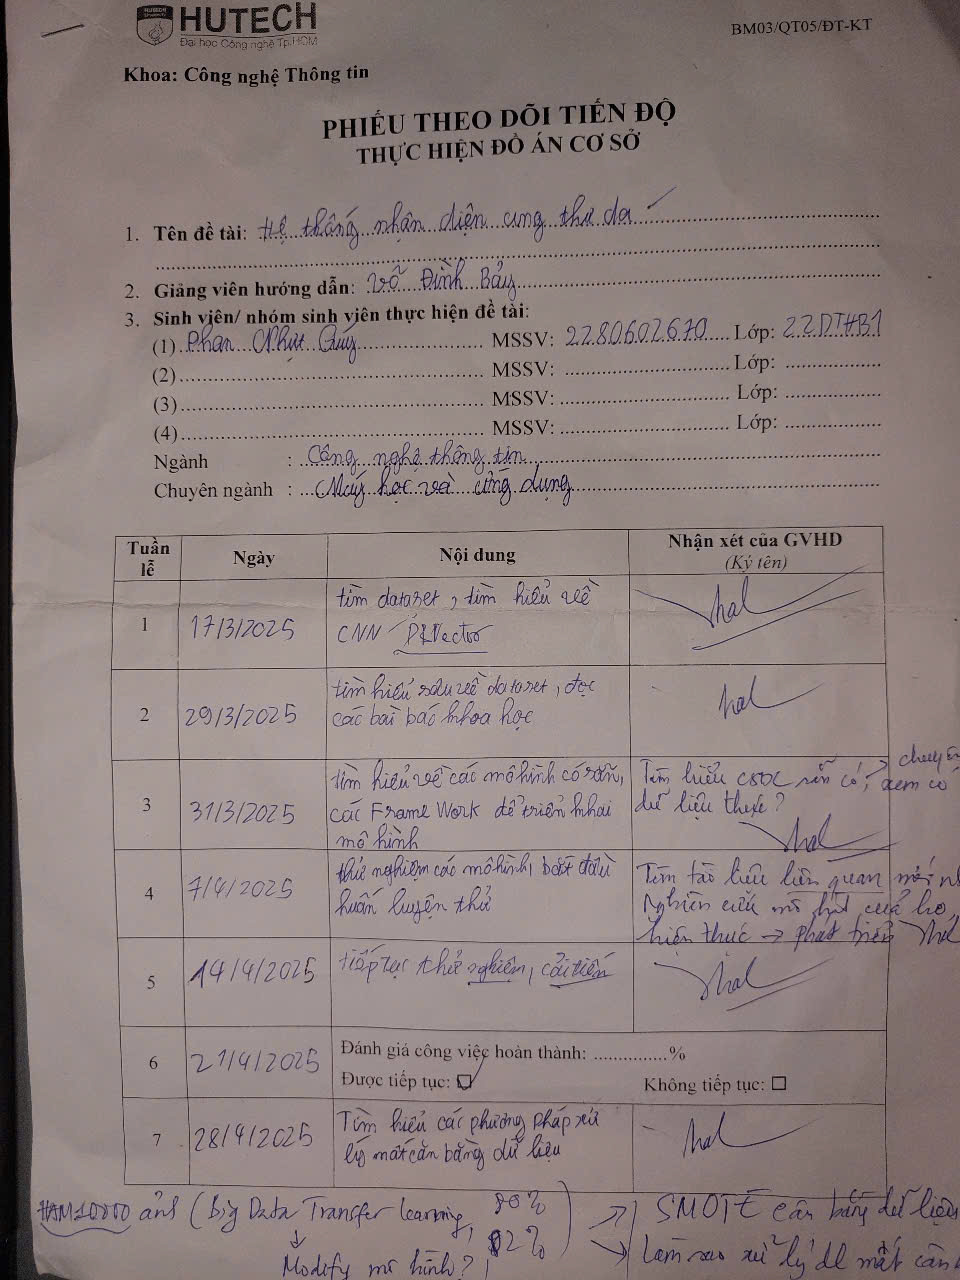 HUTECH
Đại học Công nghệ Tp.HCM
BM03/QT05/ĐT-KT
Khoa: Công nghệ Thông tin
PHIẾU THEO DÕI TIẾN ĐỘ
THỰC HIỆN ĐỒ ÁN CƠ SỞ
1. Tên đề tài: Hệ thống nhận diện ung thư da
2. Giảng viên hướng dẫn: Võ Đình Bảy
3. Sinh viên/ nhóm sinh viên thực hiện đề tài:
(1) Phan Như Quý MSSV: 2280602670 Lớp: 22DTHB1
(2) MSSV: Lớp:
(3) MSSV: Lớp:
(4) MSSV: Lớp:
Ngành : Công nghệ thông tin
Chuyên ngành : Máy học và ứng dụng
Tuần lễ Ngày Nội dung Nhận xét của GVHD
(Ký tên)
1 17/3/2025 tìm dataset, tìm hiểu về
CNN
2 29/3/2025 tìm hiểu sâu về dataset, đọc
các bài báo khoa học
3 31/3/2025 tìm hiểu về các mô hình có sẵn, Tìm hiểu CSDL sẵn có, → xem có
các Frame Work để triển khai dữ liệu thực?
mô hình
4 7/4/2025 thử nghiệm các mô hình, bắt đầu Tìm tài liệu liên quan mới
huấn luyện thử Nghiên cứu mô hình của họ,
hiện thực → phát triển
5 14/4/2025 tiếp tục thử nghiệm, cải tiến
6 21/4/2025 Đánh giá công việc hoàn thành: ...............%
Được tiếp tục: ☑ Không tiếp tục: ☐
7 28/4/2025 Tìm hiểu các phương pháp xử
lý mất cân bằng dữ liệu
HAM10000 ảnh (Big Data Transfer learning, 80% → SMOTE cân bằng dữ liệu
Modify mô hình?, 82% → làm sao xử lý DL mất cân